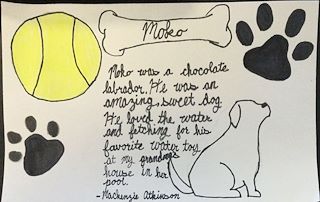 Moko
Moko was a chocolate
labrador. He was an
amazing, sweet dog.
He loved the water
and fetching for his
favorite water toy
at my grandma's
house in her
pool.
-Mackenzie Atkinson